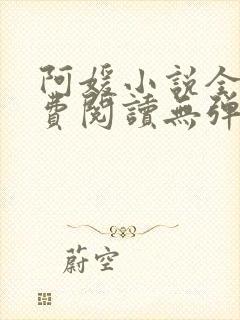 阿媛小説全
費閱讀無彈
蔚空